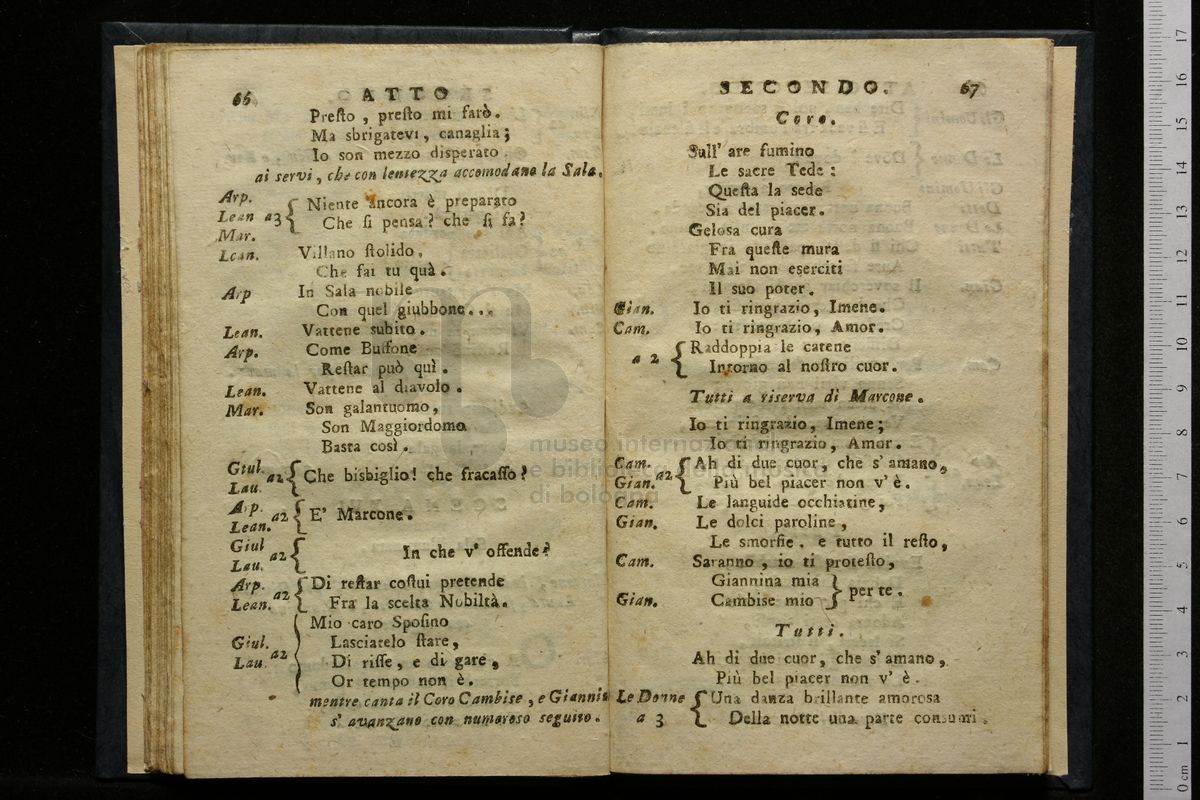 66
ATTO
Preſto, preſto mi farò.
Ma sbrigatevi, canaglia;
Io son mezzo disperato.
ai servi, che con lentezza accomodano la Sala.
Arp.
Lean
Mar.
a3
Niente ancora è preparato
Che ſi pensa? che ſi fa?
Lean. Villano ſtolido,
Che fai tu quà.
Arp In Sala nobile
Con quel giubbone...
Lean. Vattene subito.
Arp. Come Buffone
Reſtar può quì.
Lean. Vattene al diavolo.
Mar. Son galantuomo,
Son Maggiordomo
Basta così.
Giul.
Lau.
a2
Che bisbiglio! che fracaſſo?
Arp.
Lean.
a2
E' Marcone.
Giul
Lau.
a2
In che v' offende?
Arp.
Lean.
a2
Di reſtar coſtui pretende
Fra la scelta Nobiltà.
Giul.
Lau.
a2
Mio caro Sposino
Lasciatelo ſtare,
Di riſſe, e di gare,
Or tempo non è.
mentre canta il Coro Cambise, e Giannin
s' avanzano con numeroso seguito.
SECONDO.
67
Coro.
Sull' are fumino
Le sacre Tede:
Queſta la sede
Sia del piacer.
Gelosa cura
Fra queſte mura
Mai non eserciti
Il suo poter.
Gian. Io ti ringrazio, Imene.
Cam. Io ti ringrazio, Amor.
a 2
Raddoppia le catene
Intorno al noſtro cuor.
Tutti a riserva di Marcone.
Io ti ringrazio, Imene;
Io ti ringrazio, Amor.
Cam.
Gian.
a2
Ah di due cuor, che s' amano,
Più bel piacer non v' è.
Cam. Le languide occhiatine,
Gian. Le dolci paroline,
Le smorfie, e tutto il reſto,
Cam. Saranno, io ti proteſto,
Giannina mia
Gian. Cambise mio
per te.
Tutti.
Ah di due cuor, che s' amano,
Più bel piacer non v' è.
Le Donne
a 3
Una danza brillante amorosa
Della notte una parte consumi.
museo internazionale
e biblioteca della musica
di bologna
0 cm 1 2 3 4 5 6 7 8 9 10 11 12 13 14 15 16 17